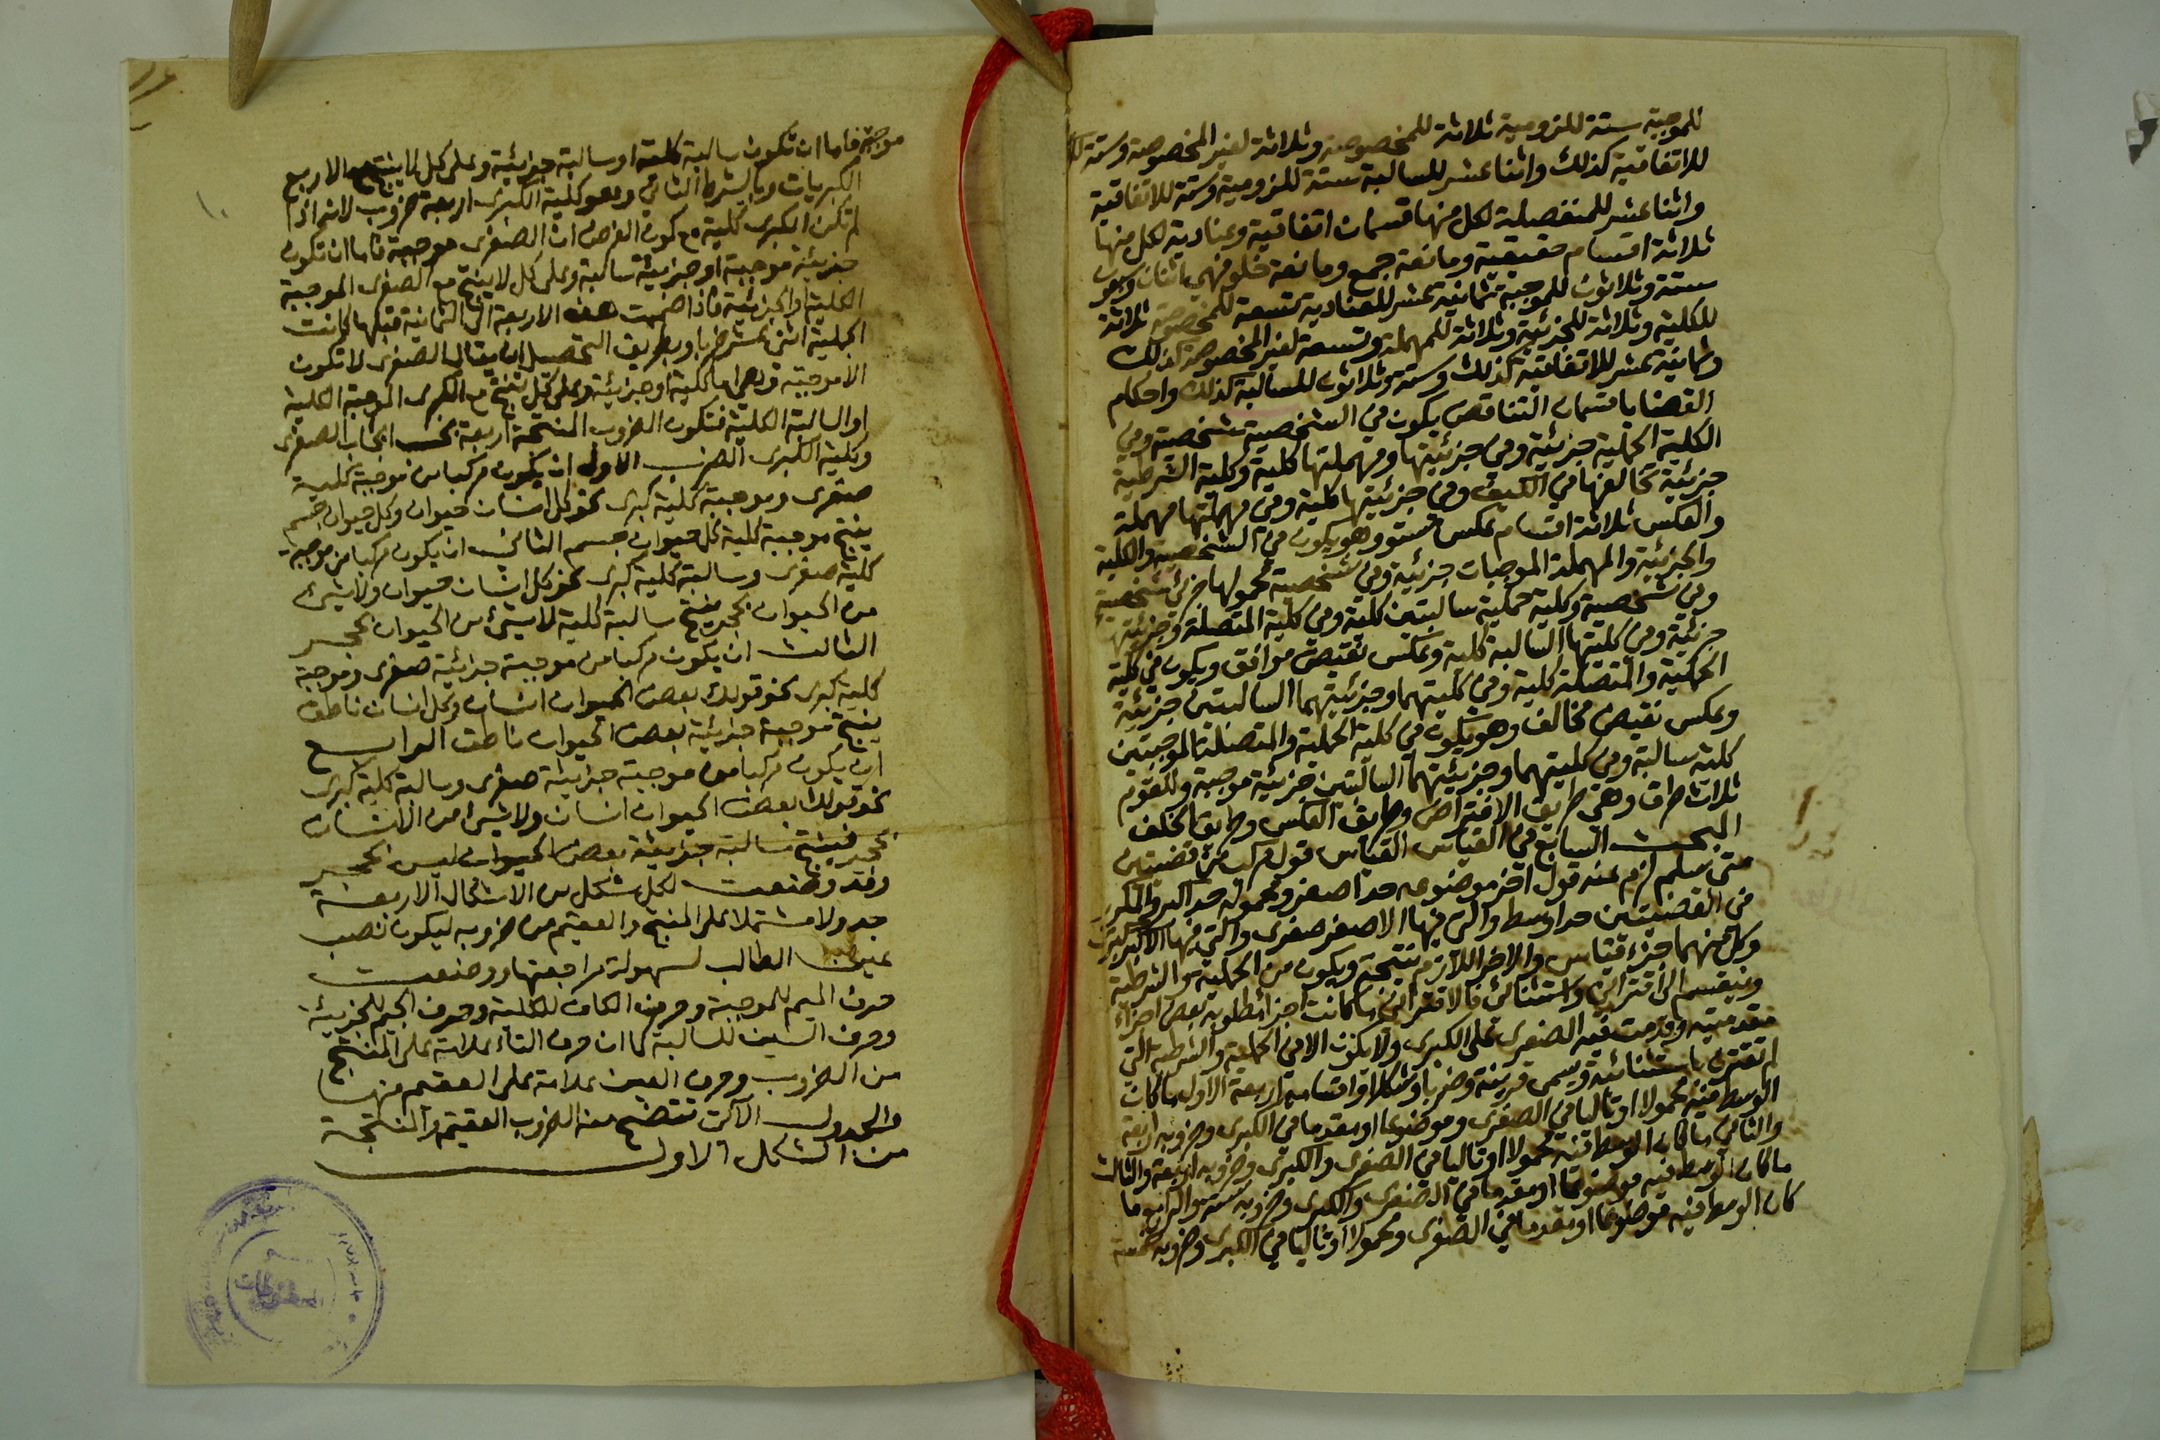 للموجبة ستة للزومية ثلاثة للمخصوصة وثلاثة لغير المخصوصة وستة
للاتفاقية كذلك واثنا عشر للسالبة ستة للزومية وستة للاتفاقية
واثنا عشر للمنفصلة لكل منها قسمان اتفاقية وعنادية لكل منها
ثلاثة اقسام حقيقية ومانعة جمع ومانعة خلو فهي اثنان وسبعون
ستة وثلاثون للموجبة ثمانية عشر للعنادية تسعة للمخصوصة ثلاثة
للكلية وثلاثة للجزئية وثلاثة للمهملة وتسعة لغير المخصوصة كذلك
وثمانية عشر للاتفاقية كذلك وستة وثلاثون للسالبة كذلك واحكام
القضايا قسمان التناقض يكون في الشخصية شخصية وفي
الكلية الحملية جزئية وفي جزئيتها ومهملتها كلية وكلية الشرطية
جزئية تخالفها في الكيف وفي جزئيتها كلية وفي مهملتها مهملة
والعكس ثلاثة اقسام عكس مستو وهو يكون في الشخصية والكلية
والجزئية والمهملة الموجبات جزئية وفي شخصية محمولها جزئي شخصية
وفي شخصية وكلية حملية سالبتين كلية وفي كلية المتصلة وجزئيتها
جزئية وفي كليتها السالبة كلية وعكس نقيض موافق ويكون في كلية
الحملية والمتصلة كلية وفي كليتهما وجزئيتهما السالبتين جزئية
وعكس نقيض مخالف وهو يكون في كلية الحملية والمتصلة الموجبتين
كلية سالبة وفي كليتهما وجزئيتهما السالبتين جزئية موجبة وللقوم
ثلاث طرق وهي طريق الافتراض وطريق العكس وطريق الخلف
البحث السابع في القياس القياس قول مركب من قضيتين
متى سلم لزم عنه قول اخر موضوعه حد اصغر ومحموله حد اكبر والمكرر
في القضيتين حد اوسط والتي فيها الاصغر صغرى والتي فيها الاكبر كبرى
وكل منهما جزء قياس والاخر اللازم نتيجة ويكون من الحملية والشرطية
وينقسم الى اقتراني واستثنائي فالاقتراني ما كانت اجزاء مطلوبه بعض اجزاء
مقدمتيه وقدمت فيه الصغرى على الكبرى ولا يكون الا في الحملية والشرطية التي
لم تقترن باستثنائية ويسمى قرينة وضربا وشكلا واقسامه اربعة الاول ما كان
الوسط فيه محمولا او تاليا في الصغرى وموضوعا او مقدما في الكبرى وضروبه اربعة
والثاني ما كان الوسط فيه محمولا او تاليا في الصغرى والكبرى وضروبه اربعة والثالث
ما كان الوسط فيه موضوعا او مقدما في الصغرى والكبرى وضروبه ستة والرابع ما
كان الوسط فيه موضوعا او مقدما في الصغرى ومحمولا او تاليا في الكبرى وضروبه خمسة
موجبة فاما ان تكون سالبة كلية او سالبة جزائية وعلى كل لا ينتج مع الاربع
الكبريات وبالشرط الثاني وهو كلية الكبرى اربعة ضروب لانه اذا
لم تكن الكبرى كلية مع كون الفرض ان الصغرى موجبة فاما ان تكون
جزئية موجبة او جزئية سالبة وعلى كل لا ينتج مع الصغرى الموجبة
الكلية او الجزئية فاذا ضمت هذه الاربعة الى الثمانية قبلها كانت
الجملة اثنى عشر ضربا وبطريق التحصيل ان يقال الصغرى لا تكون
الا موجبة وهي اما كلية او جزائية وعلى كل تنتج مع الكبرى الموجبة الكلية
او السالبة الكلية فتكون الضروب المنتجة اربعة بحسب ايجاب الصغرى
وكلية الكبرى الضرب الاول ان يكون مركبا من موجبة كلية
صغرى وموجبة كلية كبرى نحو كل انسان حيوان وكل حيوان جسم
ينتج موجبة كلية كل حيوان جسم الثاني ان يكون مركبا من موجبة
كلية صغرى وسالبة كلية كبرى نحو كل انسان حيوان ولا شيء
من الحيوان بحجر ينتج سالبة كلية لا شيء من الحيوان بحجر
الثالث ان يكون مركبا من موجبة جزائية صغرى وموجبة
كلية كبرى نحو قولك بعض الحيوان انسان وكل انسان ناطق
ينتج موجبة جزائية بعض الحيوان ناطق الرابع
ان يكون مركبا من موجبة جزائية صغرى وسالبة كلية كبرى
نحو قولك بعض الحيوان انسان ولا شيء من الانسان
بحجر فينتج سالبة جزائية بعض الحيوان ليس بحجر
وقد وضعت لكل شكل من الاشكال الاربعة
جدولا مشتملا على المنتج والعقيم من ضروبه ليكون نصب
عين الطالب لسهولة مراجعتها ووضعت
حرف الميم للموجبة وحرف الكاف للكلية وحرف الجيم للجزئية
وحرف السين للسالبة كما ان حرف التاء علامة على المنتج
من الضروب وحرف العين علامة على العقيم منها
والجدول الآتي تتضح منه الضروب العقيمة والمنتجة
من الشكل الاول